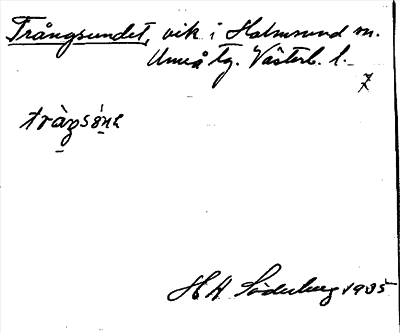 Trångsundet, vik i Holmsund m.
Umeå tg. Västerb. l.
7
tràŋsǿnɛ
H A Söderberg 1935